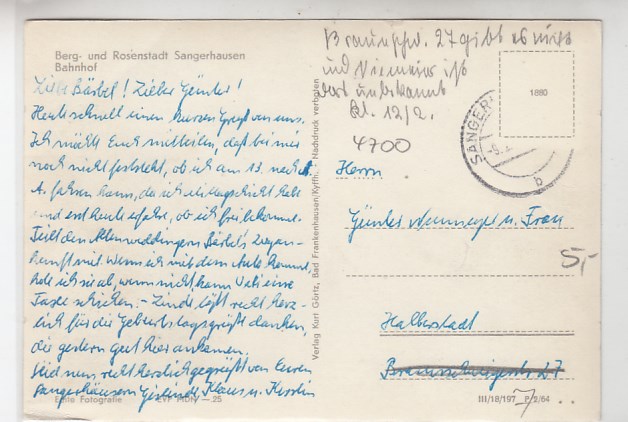 Berg- und Rosenstadt Sangerhausen
Bahnhof
Liebe Bärbel! Lieber Günter!
Heute schnell einen kurzen Gruß von uns.
Ich möchte Euch mitteilen, daß bei mir
noch nicht feststeht, ob ich am 13. nach
A. fahren kann, da ich
und erst heute erfahre, ob ich frei bekomme.
Teilt den Altenweddingern Bärbel's Zugan-
kunft mit, wenn ich mit dem Auto komme,
hole ich sie ab, wenn nicht, kann Vati eine
Taxe schicken. – Linde läßt recht herz-
lich für die Geburtstagsgrüße danken,
die gestern gut hier ankamen.
Seid nun recht herzlich gegrüßt von Euren
Sangerhäusern Gislinde, Klaus u. Kerstin
Echte Fotografie
25
Verlag Kurt Görtz, Bad Frankenhausen/Kyffh. • Nachdruck verboten
Braunschw. 27 gibt es nicht
und Niemeier ist
dort unbekannt
Bl. 12/2.
4700
1880
SANGER
b
Herrn
Günter u. Frau
5,-
Halberstadt
Braunschweigerstr. 27
III/18/197 P 2/64